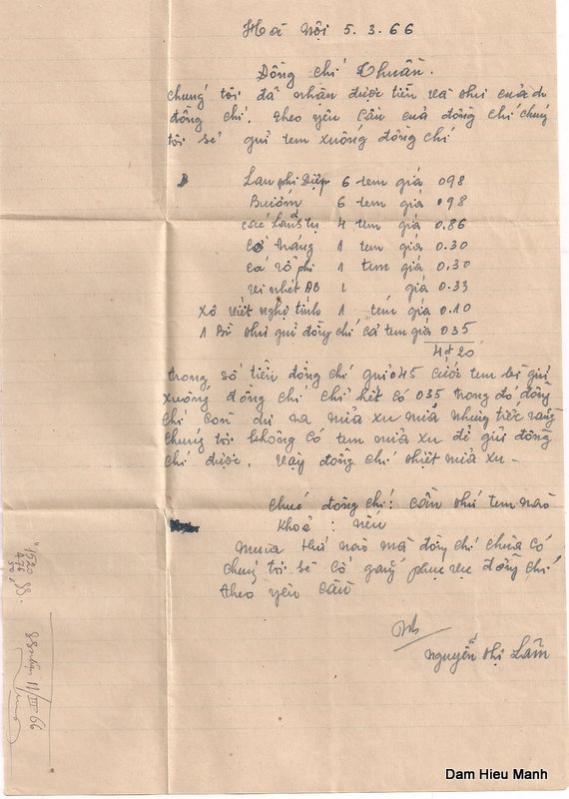 Hà Nội 5.3.66
Đồng chí Thuần.
chúng tôi đã nhận được tiền và thư của đ
đồng chí. theo yêu cầu của đồng chí chúng
tôi sẽ gửi tem xuống đồng chí
Lan phi điệp 6 tem giá 098
Bướm 6 tem giá 098
các 4 tem giá 0.86
1 tem giá 0.30
cá rô phi 1 tem giá 0.30
1 giá 0.33
Xô viết nghệ tĩnh 1 tem giá 0.10
1 Bì thư gửi đồng chí cả tem giá 035
4đ20
trong số tiền đồng chí gửi 045 cước tem bì gửi
xuống đồng chí chỉ hết có 035 trong đó đồng
chí còn dư ra nửa xu nữa nhưng tiếc rằng
chúng tôi không có tem nửa xu để gửi đồng
chí được. vậy đồng chí thiệt nửa xu -
chúc đồng chí: cần thứ tem nào
khoẻ: nếu
mua thứ nào mà đồng chí chưa có
chúng tôi sẽ cố gắng phục vụ đồng chí
theo yêu cầu
Nguyễn thị Lâm
11/III 66
Dam Hieu Manh